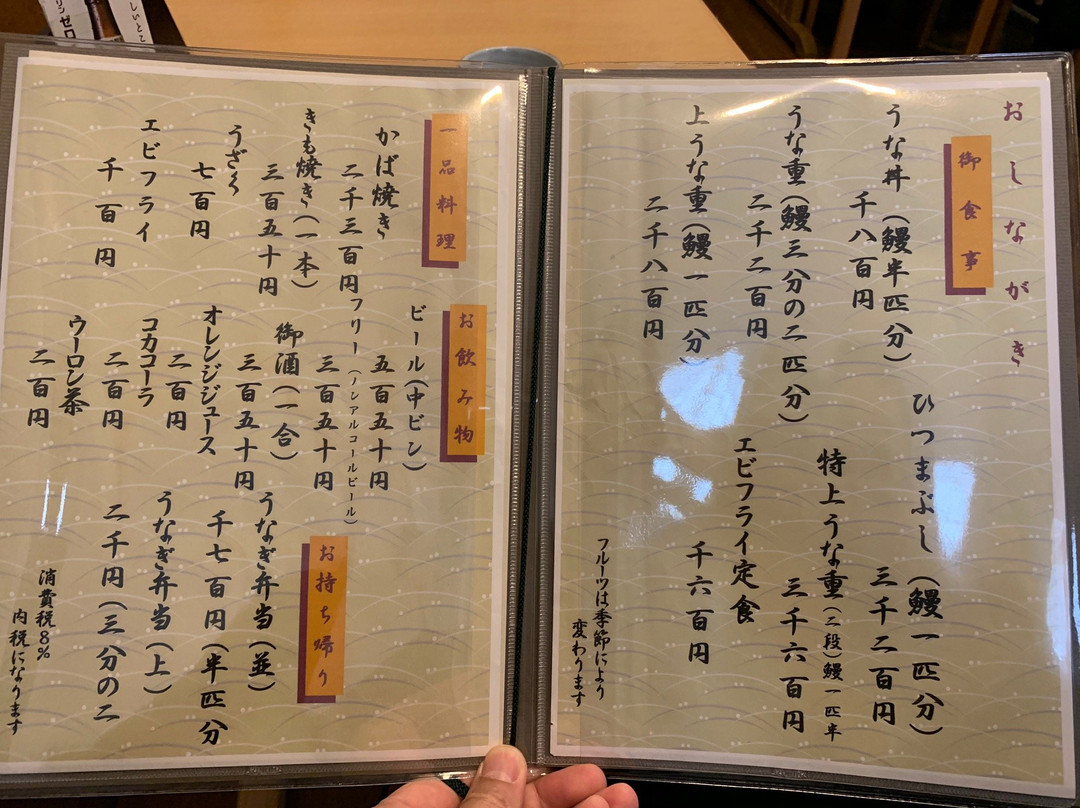 おしながき
御食事
うな丼(鰻半匹分)
千八百円
うな重(鰻三分の二匹分)
二千二百円
上うな重(鰻一匹分)
二千八百円
ひつまぶし(鰻一匹分)
三千二百円
特上うな重(二段)鰻一匹半
三千六百円
エビフライ定食
千六百円
フルーツは季節により
変わります
一品料理
かば焼き
二千三百円
きも焼き(一本)
三百五十円
うざく
七百円
エビフライ
千百円
お飲み物
ビール(中ビン)
五百五十円
フリー(ノンアルコールビール)
三百五十円
御酒(一合)
三百五十円
オレンジジュース
二百円
コカコーラ
二百円
ウーロン茶
二百円
お持ち帰り
うなぎ弁当(並)
千七百円(半匹分
うなぎ弁当(上)
二千円(三分の二
消費税8%
内税になります